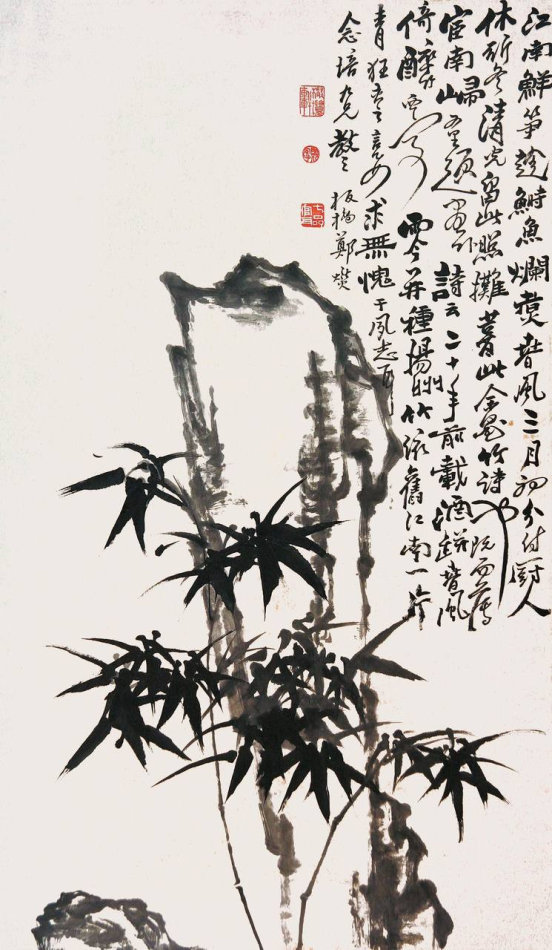 江南鮮筍趁鰣魚爛煮春風三月初分付廚人
休斫盡清光留此照攤書此余畫竹詩也既而薄
宦南歸重詩云二十年前載酒瓶春風
倚醉今再種揚州竹依舊江南一片
青狂求無愧于夙志耳
板橋鄭燮